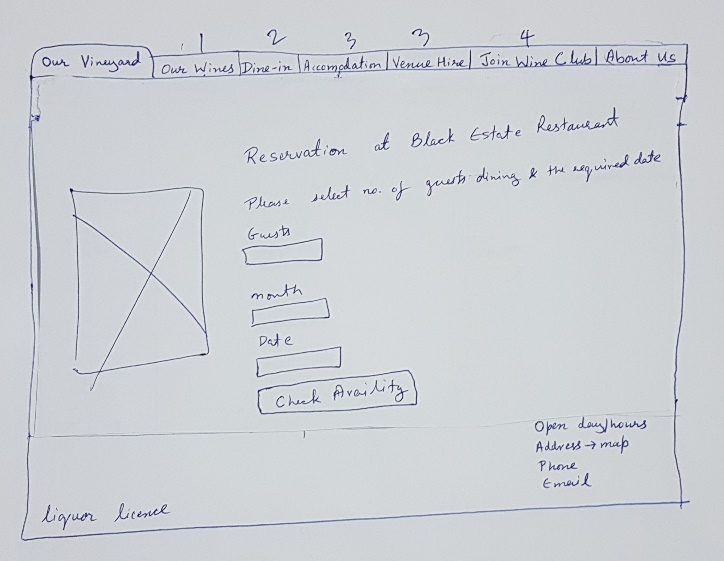 1 2 3 3 4
Our Vineyard Our Wines Dine-in Accomodation Venue Hire Join Wine Club About Us
Reservation at Black Estate Restaurant
Please select no. of guests dining & the required date
Guests
month
Date
Check Availity
Open day/hours
Address → map
Phone
Email
liquor licence